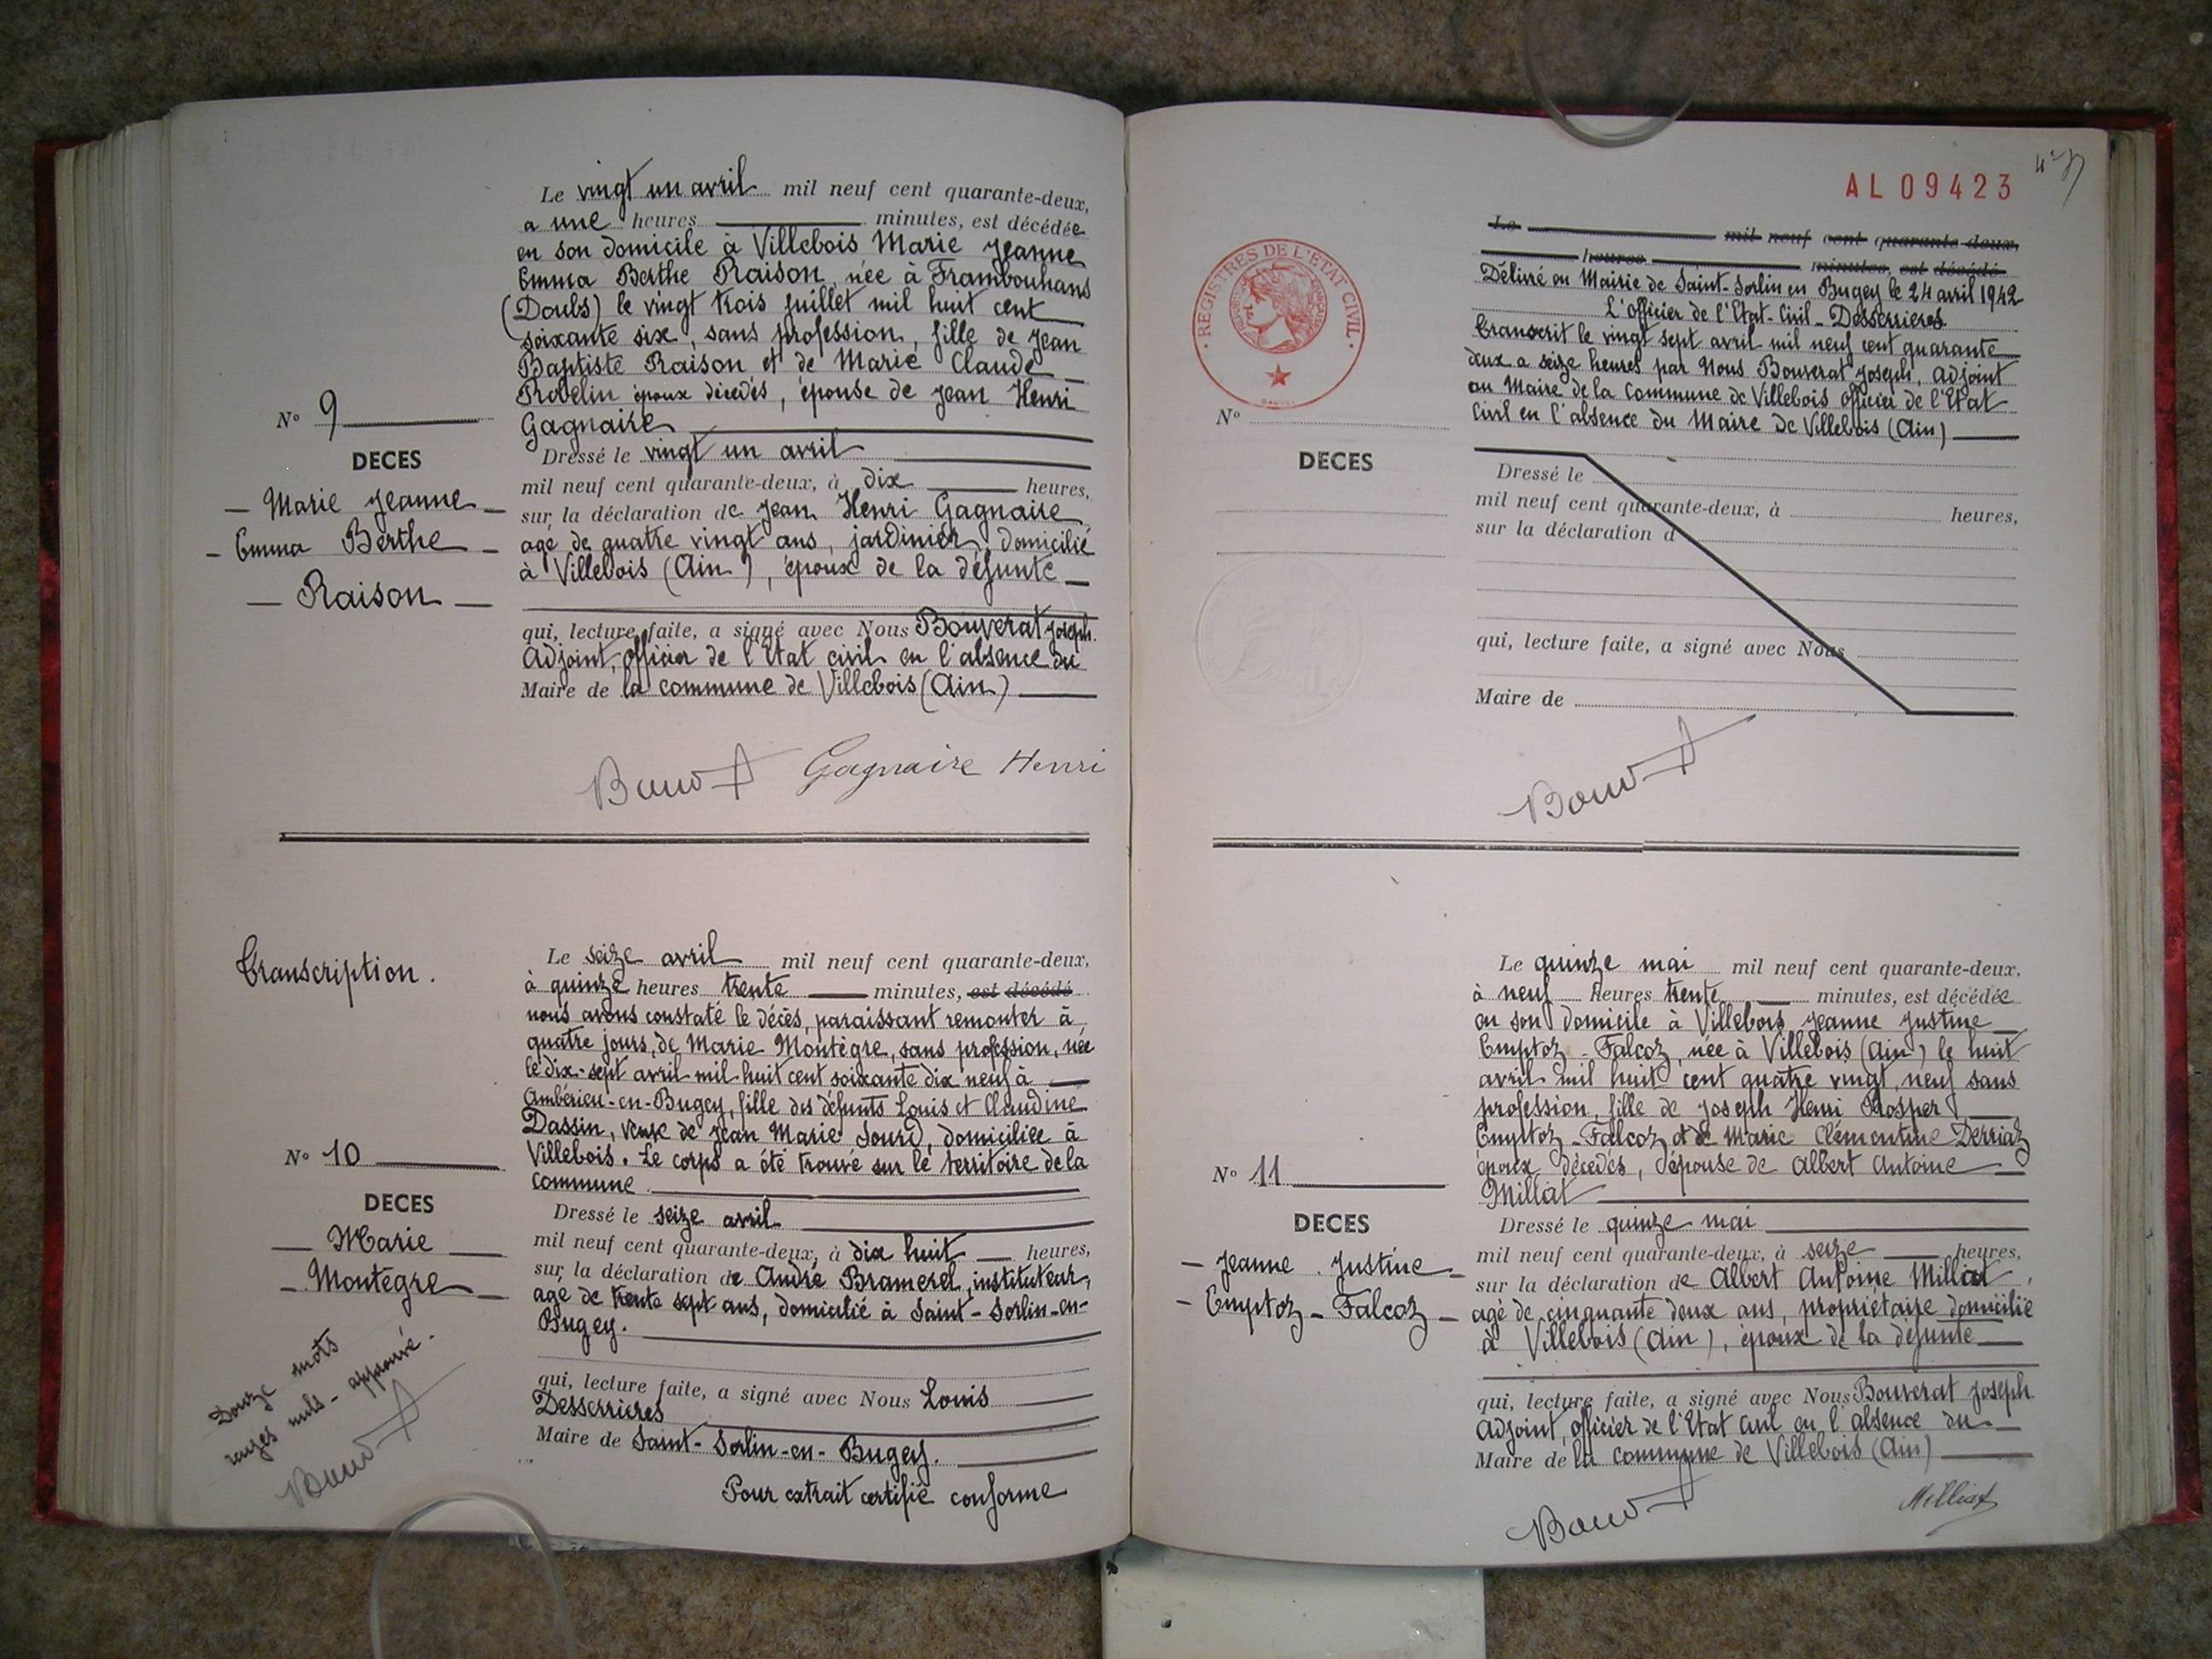 Le vingt un avril mil neuf cent quarante-deux,
a une heures minutes, est décédée
en son domicile à Villebois Marie Jeanne
Emma Berthe Raison, née à Frambouhans
(Doubs) le vingt trois juillet mil huit cent
soixante six, sans profession, fille de Jean
Baptiste Raison et de Marie Claude
Robelin époux décédés, épouse de Jean Henri
Gagnaire
N° 9
DECES
Marie Jeanne
Emma Berthe
Raison
Dressé le vingt un avril
mil neuf cent quarante-deux, à dix heures,
sur la déclaration de Jean Henri Gagnaire
agé de quatre vingt ans, jardinier, domicilié
à Villebois (Ain), époux de la défunte
qui, lecture faite, a signé avec Nous Bouverat Joseph.
Adjoint, officier de l'Etat civil en l'absence du
Maire de la commune de Villebois (Ain)
Gagnaire Henri
Transcription.
Le seize avril mil neuf cent quarante-deux,
à quinze heures trente minutes, est décédé
nous avons constaté le décès, paraissant remonter à
quatre jours, de Marie Montègre, sans profession, née
le dix-sept avril mil huit cent soixante dix neuf à
Ambérieu-en-Bugey, fille des défunts Louis et Claudine
Dassin, veuve de Jean Marie Sourd, domiciliée à
Villebois. Le corps a été trouvé sur le territoire de la
commune
N° 10
DECES
Marie
Montègre
Douze mots
rayés nuls - approuvé.
Dressé le seize avril
mil neuf cent quarante-deux, à dix huit heures,
sur la déclaration de André Bramerel, instituteur,
agé de trente sept ans, domicilié à Saint-Sorlin-en-
Bugey.
qui, lecture faite, a signé avec Nous Louis
Desserrieres
Maire de Saint-Sorlin-en-Bugey.
Pour extrait certifié conforme
AL 09423
REGISTRES DE L'ETAT CIVIL
Le mil neuf cent quarante-deux,
heures minutes, est décédé
Délivré en Mairie de Saint-Sorlin en Bugey le 24 avril 1942
L'officier de l'Etat-Civil - Desserrieres
Transcrit le vingt sept avril mil neuf cent quarante
deux a seize heures par Nous Bouverat Joseph, Adjoint
au Maire de la Commune de Villebois officier de l'Etat
Civil en l'absence du Maire de Villebois (Ain)
N°
DECES
Dressé le
mil neuf cent quarante-deux, à heures,
sur la déclaration d
qui, lecture faite, a signé avec Nous
Maire de
Le quinze mai mil neuf cent quarante-deux.
à neuf heures trente minutes, est décédée
en son domicile à Villebois Jeanne Justine
Emptoz-Falcoz, née à Villebois (Ain) le huit
avril mil huit cent quatre vingt neuf sans
profession, fille de Joseph Henri Prosper
Emptoz-Falcoz et de Marie Clémentine Derriaz
époux décédés, épouse de Albert Antoine
Milliat
N° 11
DECES
Jeanne Justine
Emptoz-Falcoz
Dressé le quinze mai
mil neuf cent quarante-deux, à seize heures,
sur la déclaration de Albert Antoine Milliat,
agé de cinquante deux ans, propriétaire domicilié
à Villebois (Ain), époux de la défunte
qui, lecture faite, a signé avec Nous Bouverat Joseph
Adjoint, officier de l'Etat Civil en l'absence du
Maire de la commune de Villebois (Ain)
Milliat